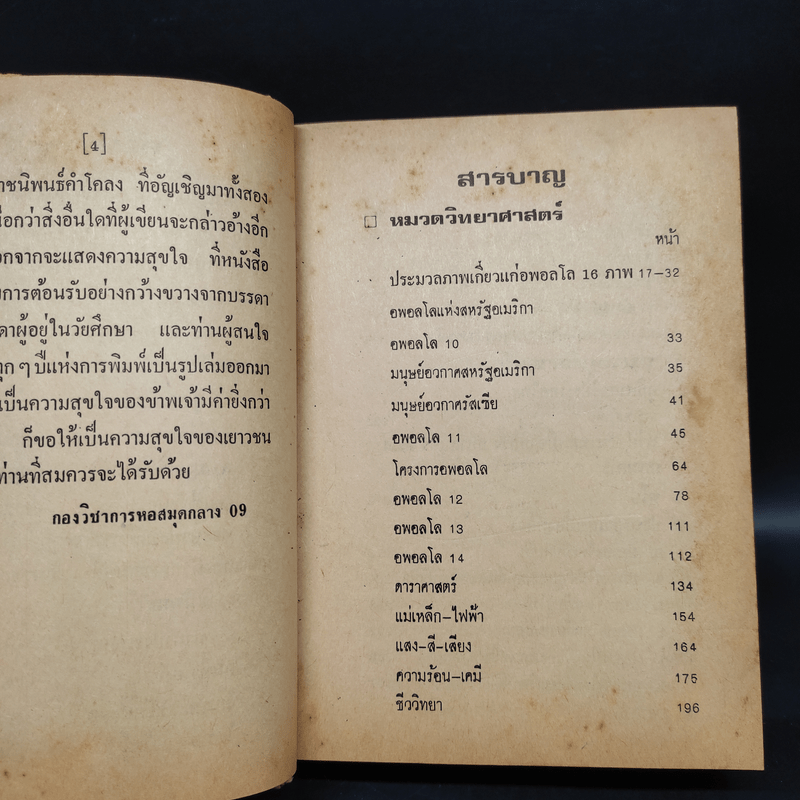 [4]
ชนิพนธ์คำโคลง ที่อัญเชิญมาทั้งสอง
กว่าสิ่งอื่นใดที่ผู้เขียนจะกล่าวอ้างอีก
จากจะแสดงความสุขใจ ที่หนังสือ
การต้อนรับอย่างกว้างขวางจากบรรดา
ผู้อยู่ในวัยศึกษา และท่านผู้สนใจ
ทุก ๆ ปีแห่งการพิมพ์เป็นรูปเล่มออกมา
เป็นความสุขใจของข้าพเจ้ามีค่ายิ่งกว่า
ก็ขอให้เป็นความสุขใจของเยาวชน
ท่านที่สมควรจะได้รับด้วย
กองวิชาการหอสมุดกลาง 09
สารบาญ
หมวดวิทยาศาสตร์
หน้า
ประมวลภาพเกี่ยวแก่อพอลโล 16 ภาพ 17-32
อพอลโลแห่งสหรัฐอเมริกา
อพอลโล 10 33
มนุษย์อวกาศสหรัฐอเมริกา 35
มนุษย์อวกาศรัสเซีย 41
อพอลโล 11 45
โครงการอพอลโล 64
อพอลโล 12 78
อพอลโล 13 111
อพอลโล 14 112
ดาราศาสตร์ 134
แม่เหล็ก-ไฟฟ้า 154
แสง-สี-เสียง 164
ความร้อน-เคมี 175
ชีววิทยา 196